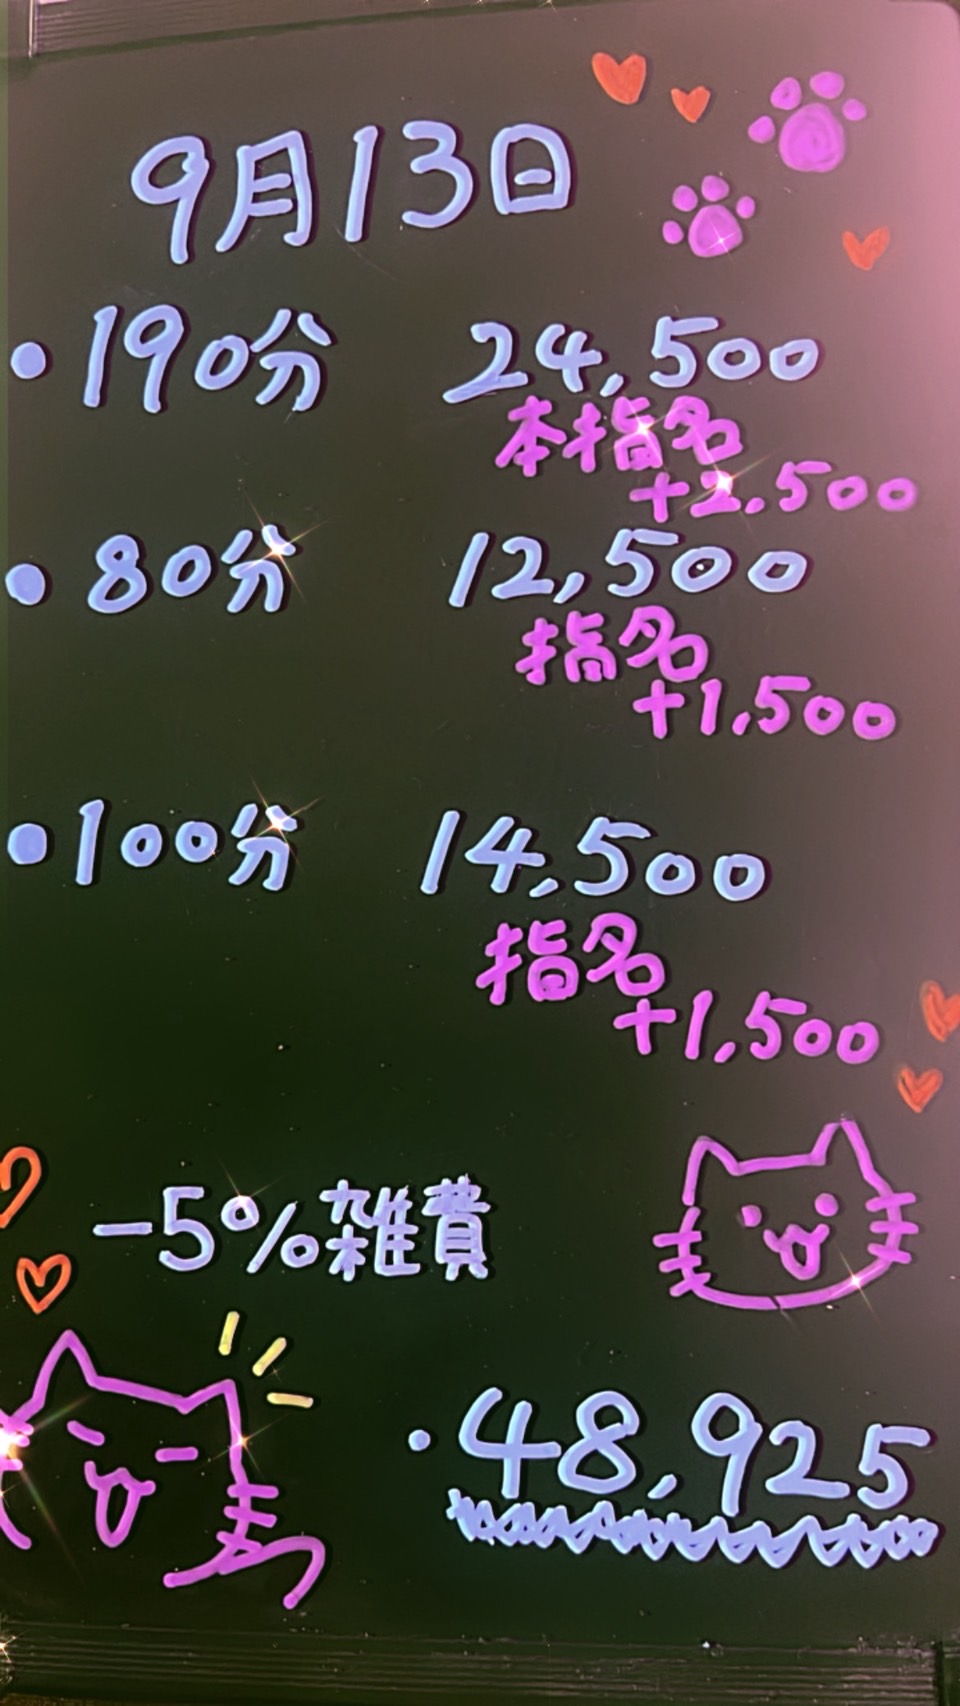 9月13日
・190分 24,500
本指名
+2.500
・80分 12,500
指名
+1,500
・100分 14,500
指名
+1,500
-5%雑費
・48,925